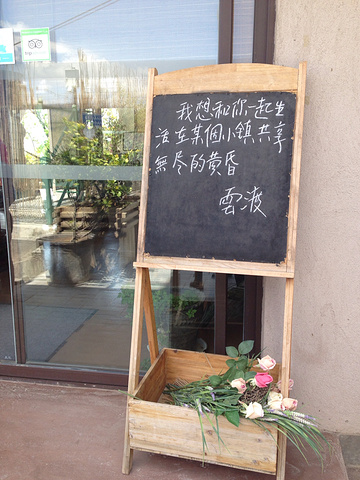 我想和你一起生
活在某個小鎮共享
無尽的黄昏
雲波